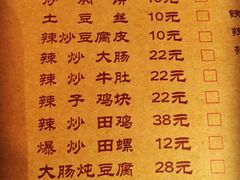 土豆丝 10元
辣炒豆腐皮 10元
辣炒大肠 22元
辣炒牛肚 22元
辣子鸡块 22元
辣炒田鸡 38元
爆炒田螺 12元
大肠炖豆腐 28元